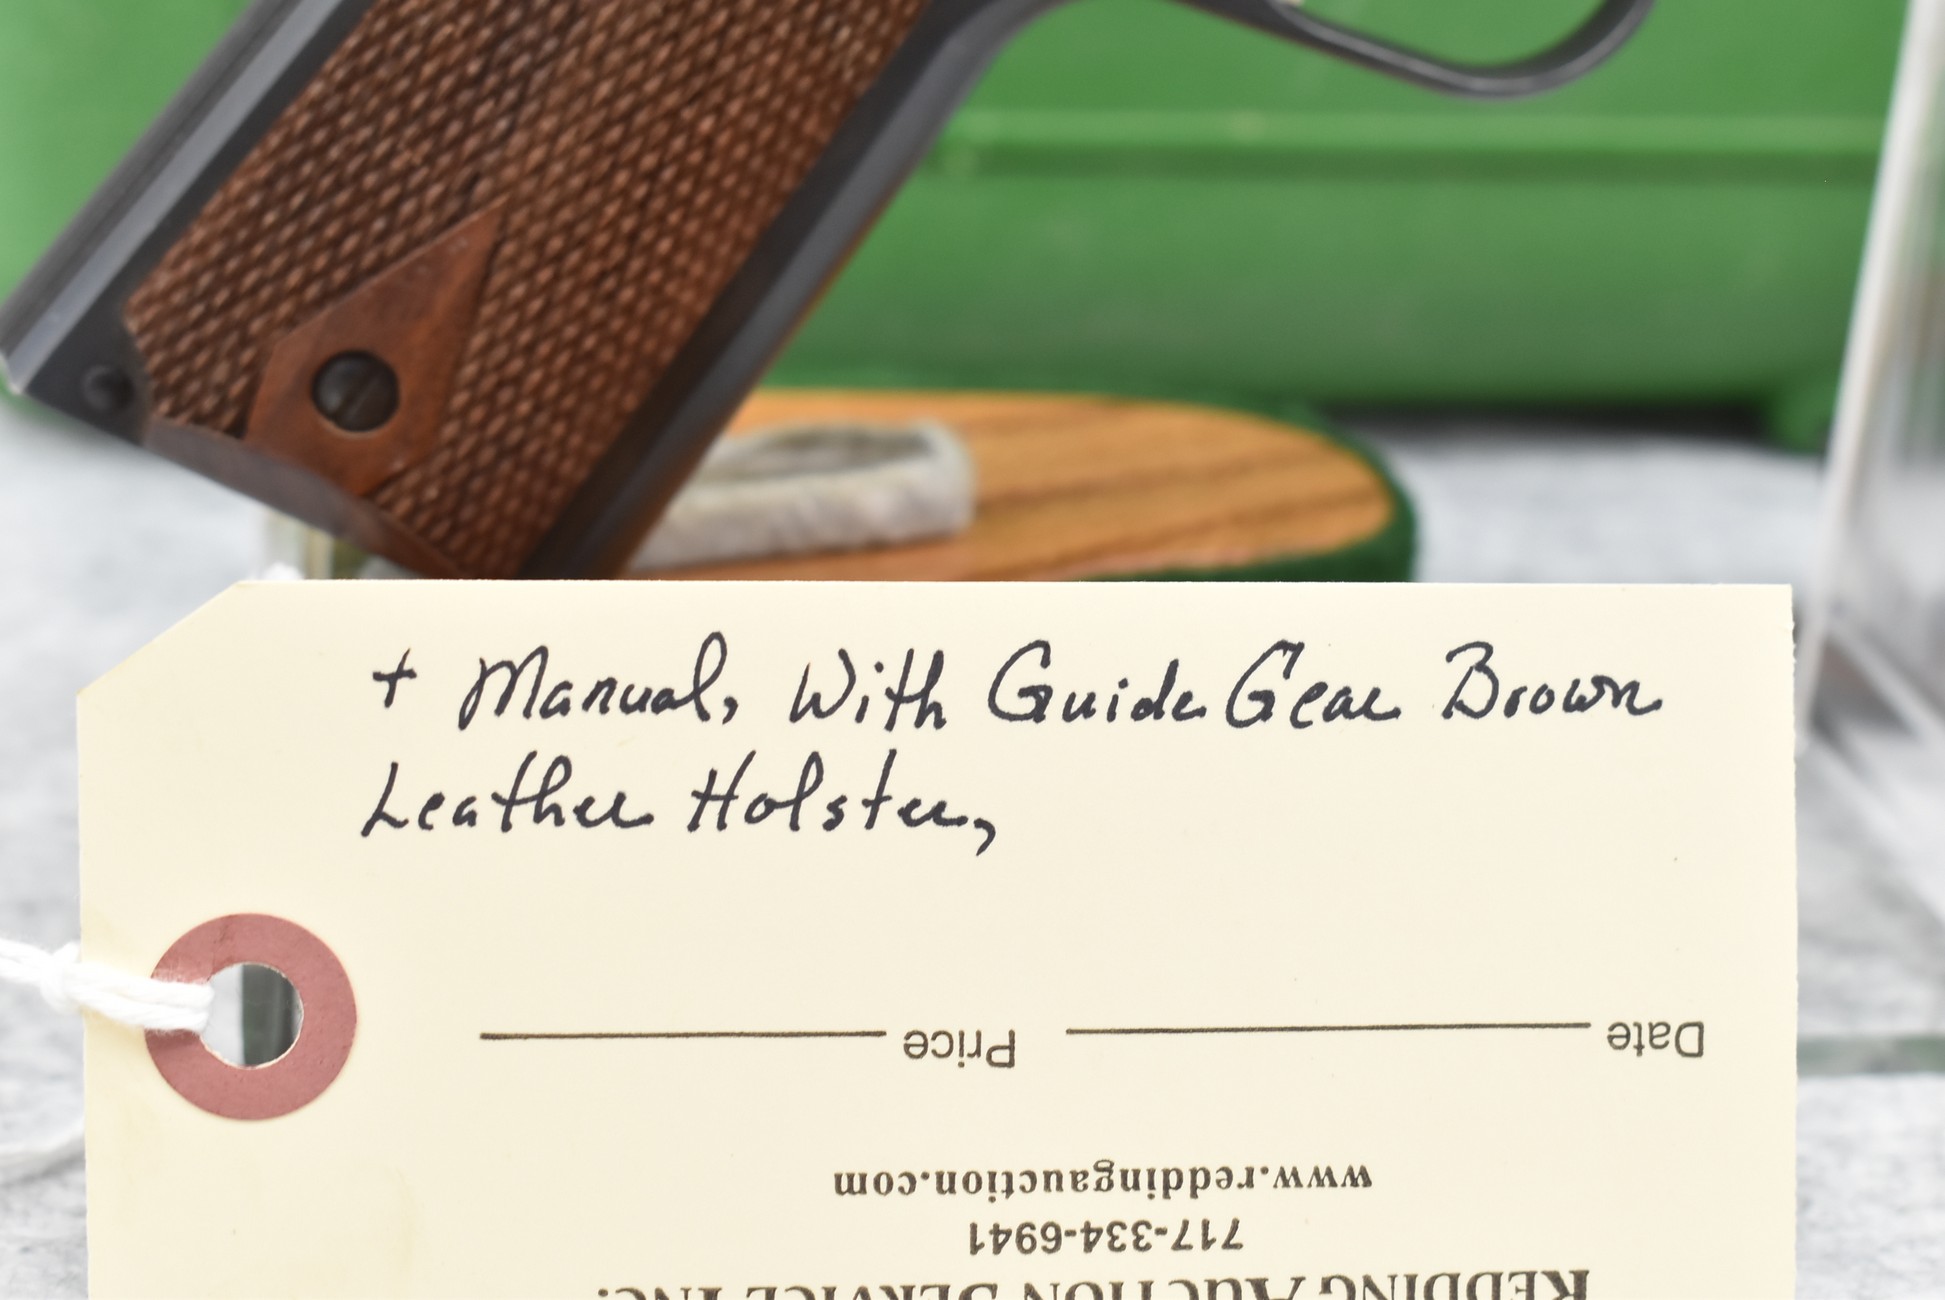 + Manual, With Guide Gear Brown
Leather Holster,
Date Price
www.reddingauction.com
717-334-6941
REDDING AUCTION SERVICE INC.